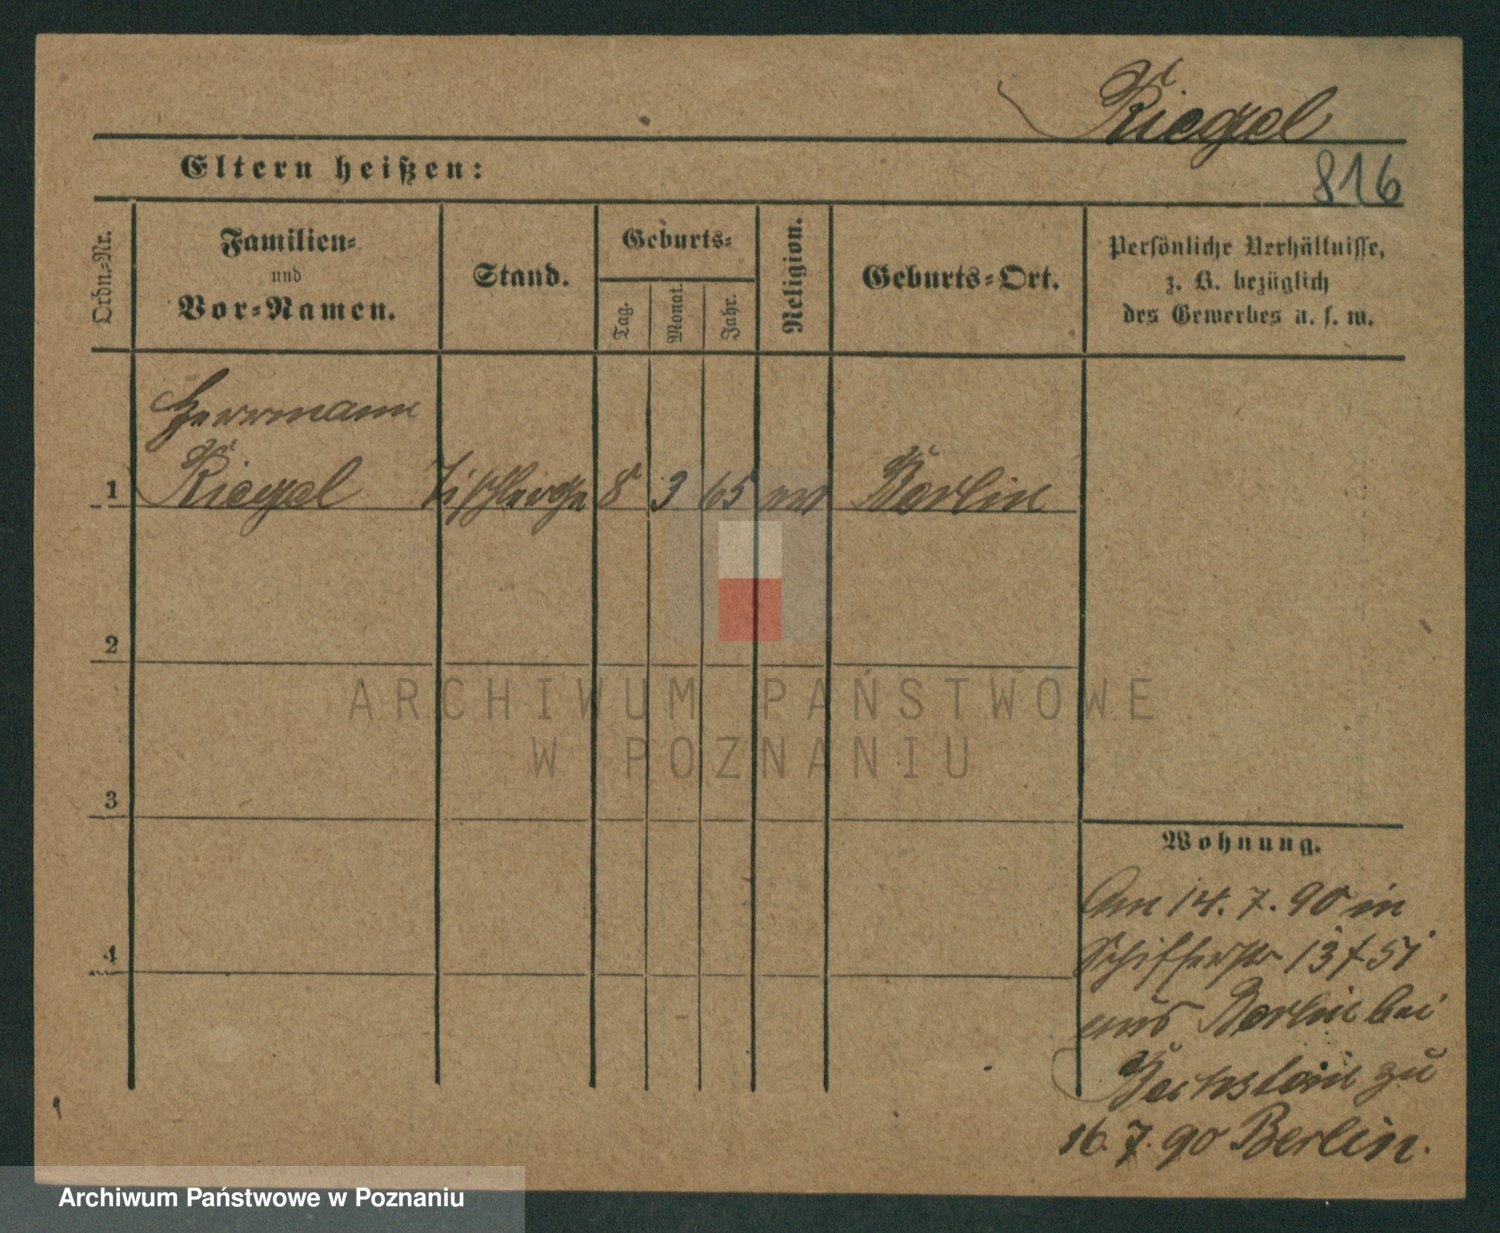 Riegel
816
Eltern heißen:
Ordn.-Nr.
Familien-
und
Vor-Namen.
Stand.
Geburts-
Tag.
Monat.
Jahr.
Religion.
Geburts-Ort.
Persönliche Verhältnisse,
z. B. bezüglich
des Gewerbes u. s. w.
Herrmann
1 Riegel Tischlerge 8 3 65 ev Berlin
2
3
4
ARCHIWUM PAŃSTWOWE
W POZNANIU
Wohnung.
Am 14. 7. 90 in
Schifferstr 13
aus Berlin bei
zu
16. 7. 90 Berlin.
Archiwum Państwowe w Poznaniu